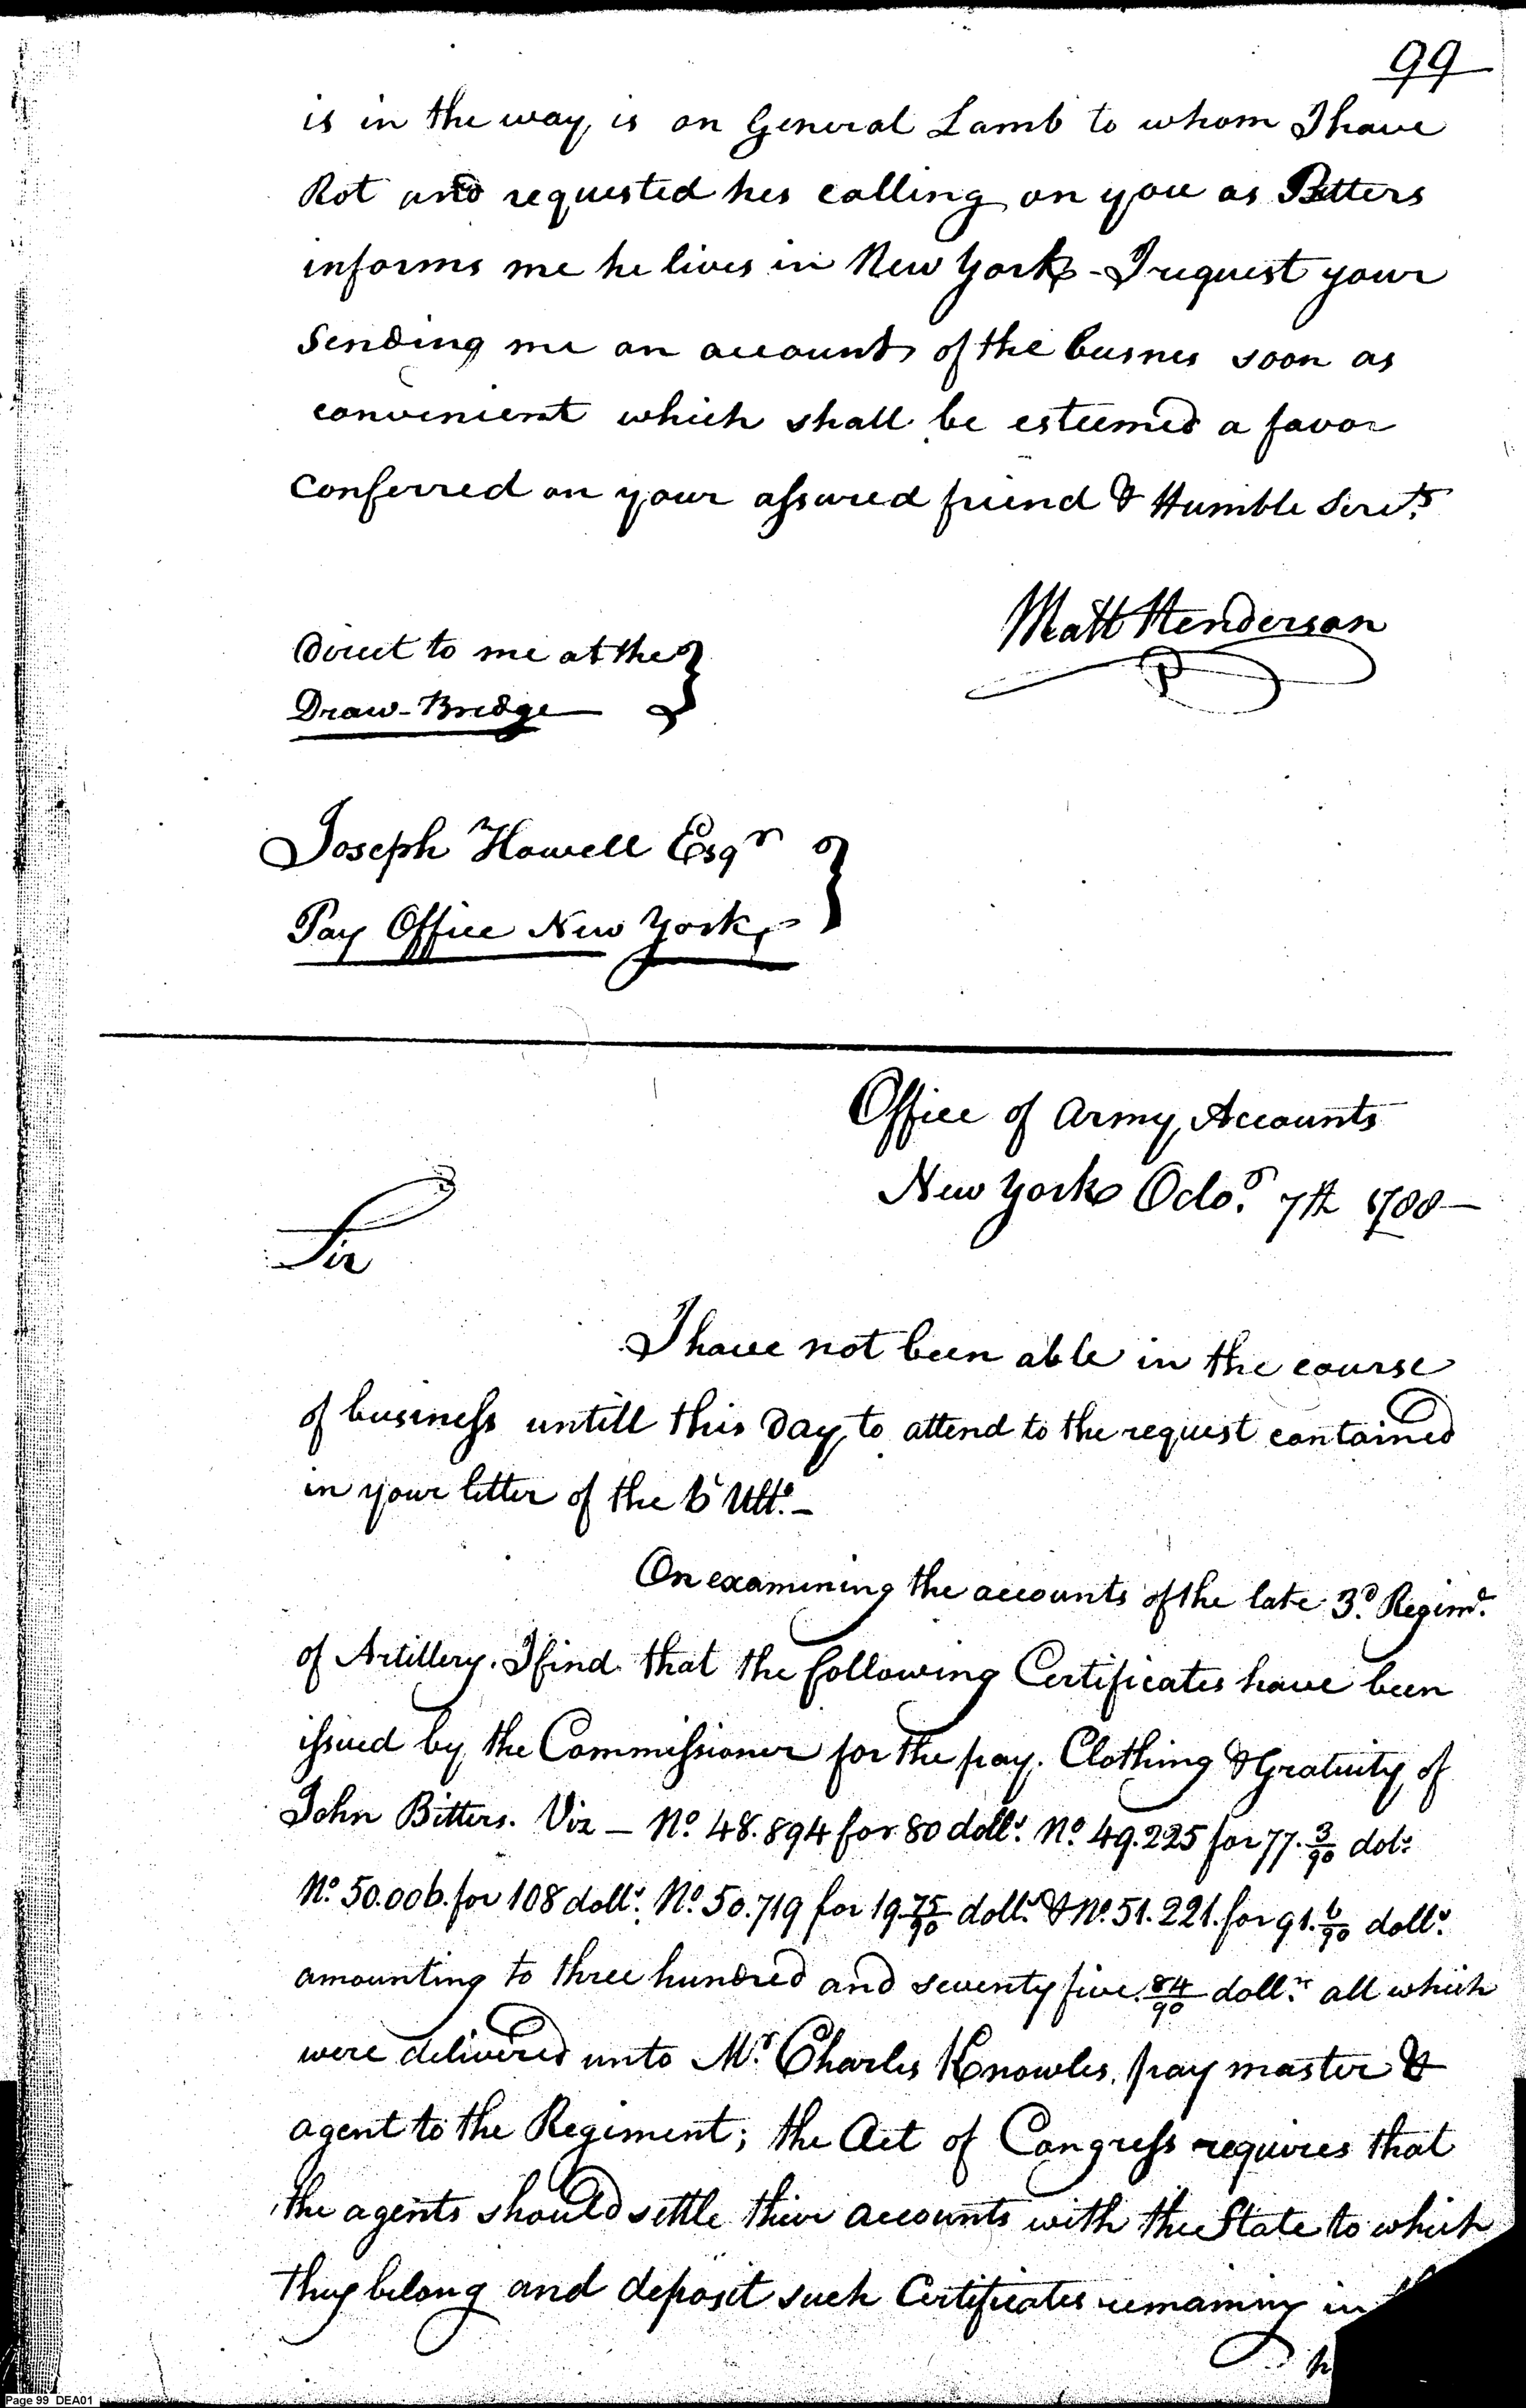 99
is in the way, is on General Lamb to whom I have
Rot and requested hes calling on you as Bitters
informs me he lives in New York - I request your
Sending me an account of the busnes soon as
convenient which shall be esteemed a favor
Conferred on your assured friend & Humble Servt.
Matt Henderson
Direct to me at the
Draw-Bridge
Joseph Howell Esqr
Pay Office New York
Office of Army Accounts
New York Octo. 7th 1788
Sir
I have not been able in the course
of business untill this Day, to attend to the request contained
in your letter of the 6 Ulto. -
On examining the accounts of the late 3d. Regimt.
of Artillery. I find that the following Certificates have been
issued by the Commissioner for the pay. Clothing & Gratuity of
John Bitters. Viz — No. 48.894 for 80 dolls. No. 49.225 for 77. 3/90 dols.
No. 50.006. for 108 dolls. No. 50.719 for 19. 75/90 dolls. & No. 51.221. for 91. 6/90 dolls.
amounting to three hundred and seventy five. 84/90 dolls. all which
were delivered unto Mr. Charles Knowles, pay master &
agent to the Regiment; the Act of Congress requires that
the agents should settle their accounts with the State to which
they belong and deposit such Certificates remaining in
Page 99 DEA01